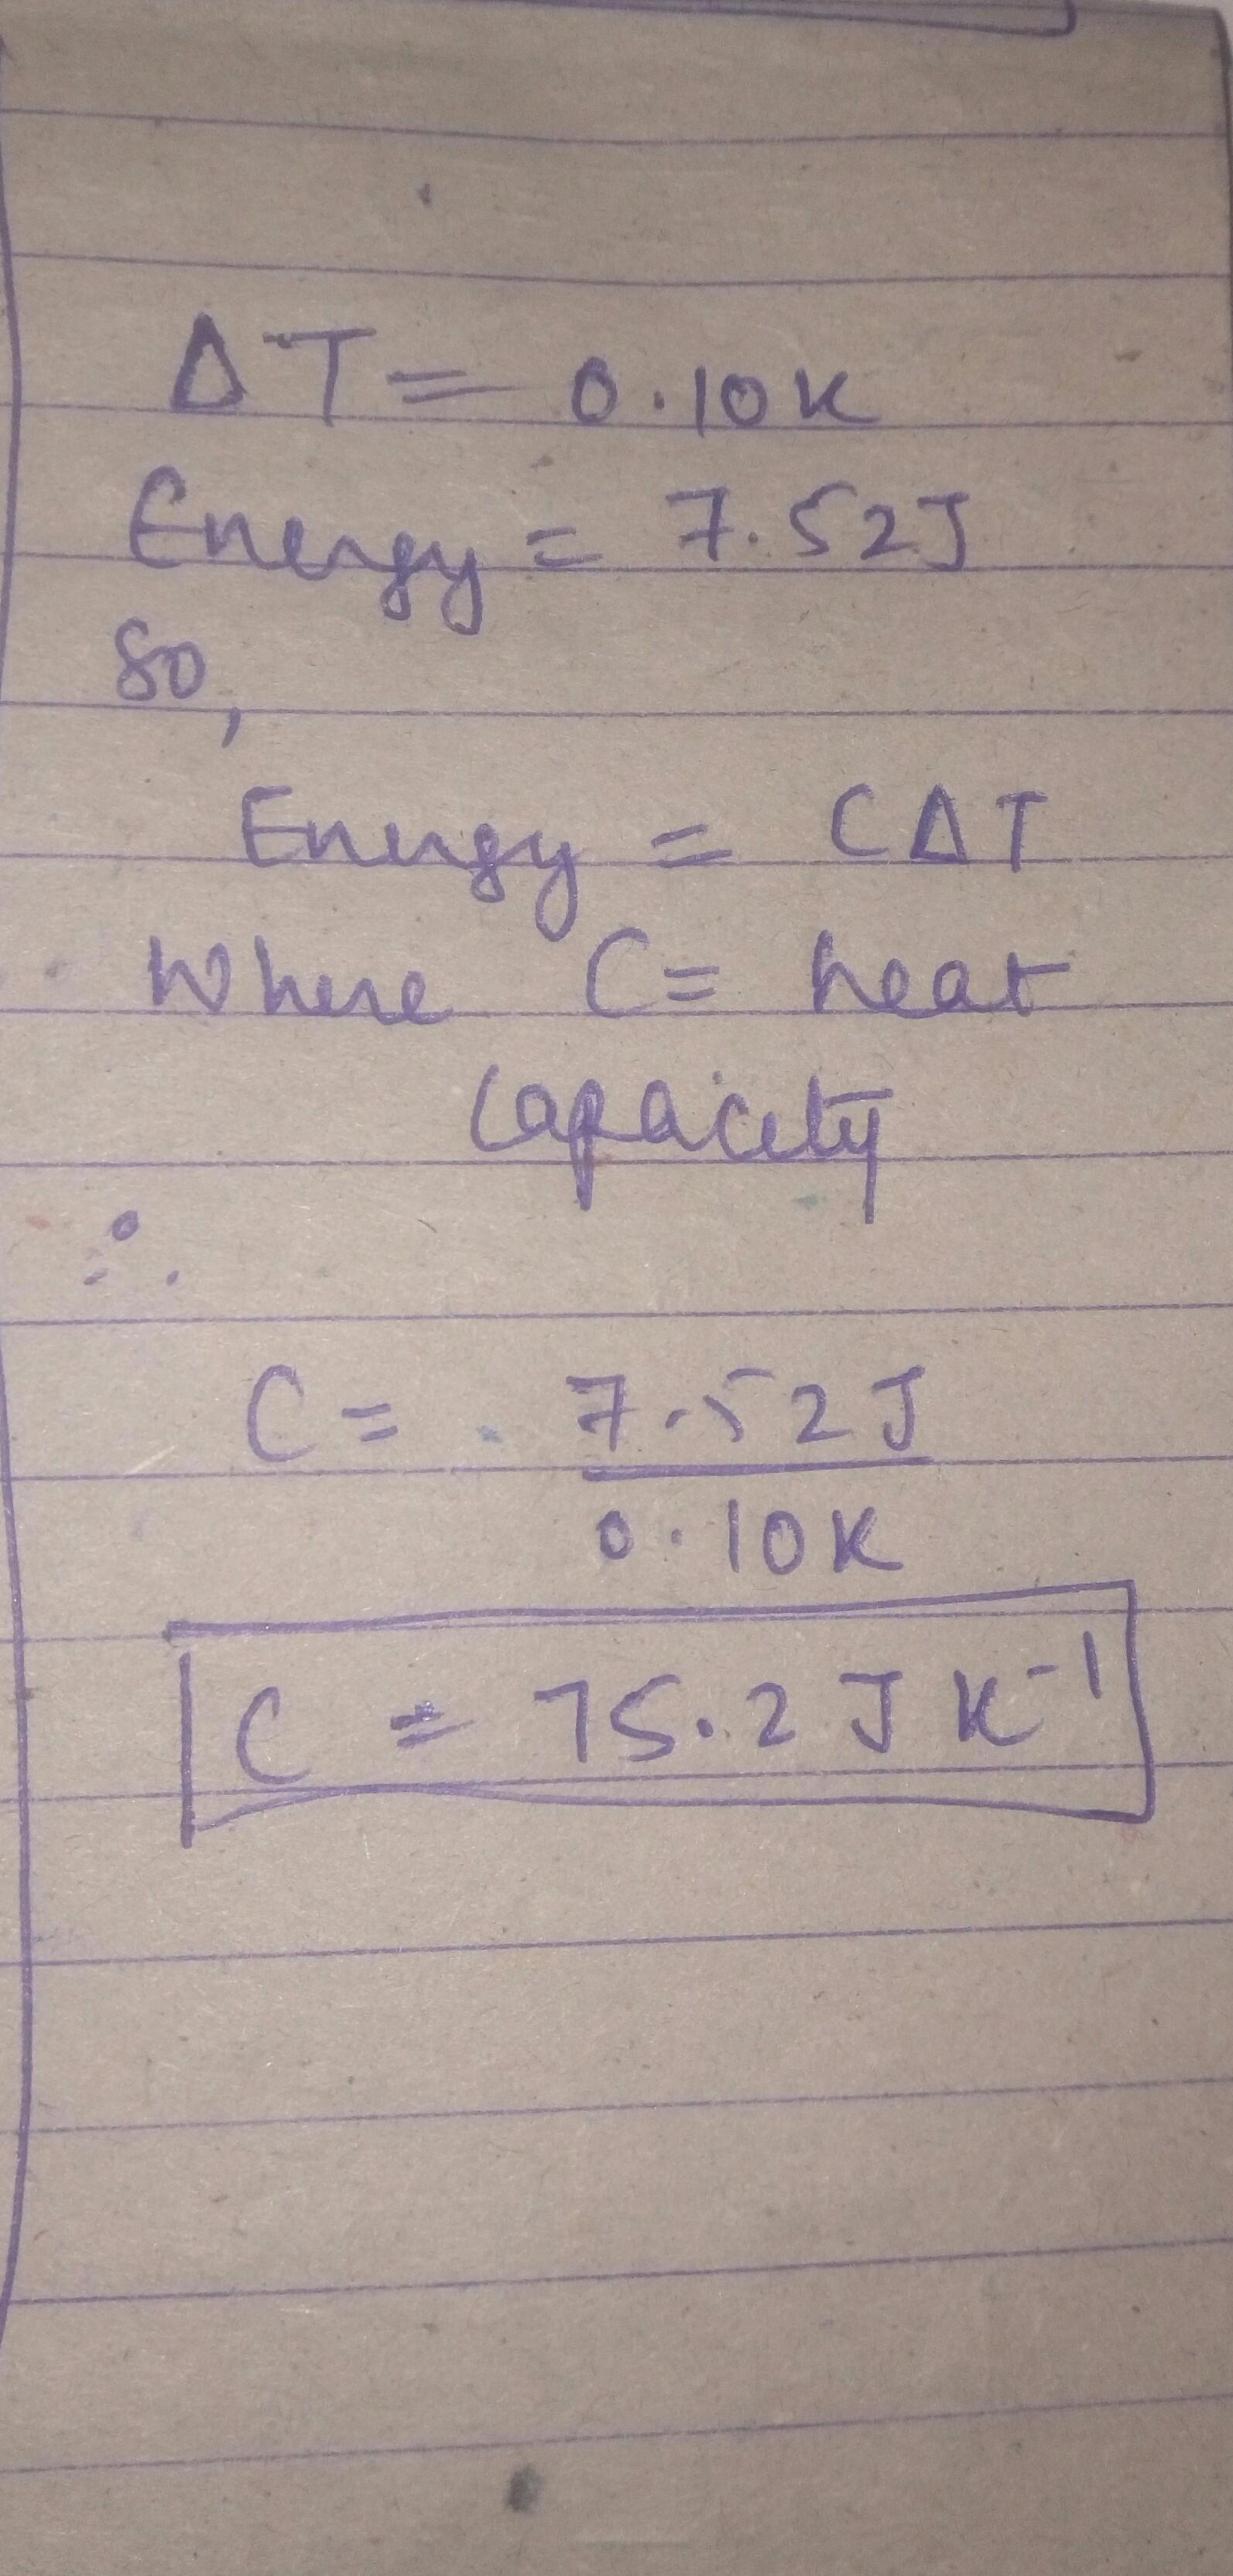 ΔT = 0.10K
Energy = 7.52J
So,
Energy = CΔT
Where C = heat
capacity
∴
C = 7.52J
0.10K
C = 75.2 J K⁻¹